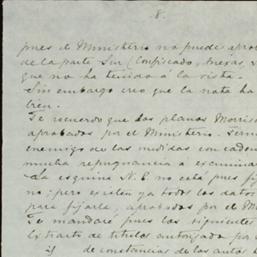 8.
pues el Ministerio no puede aprob
de la parte Sur (Conficado,
que no ha tenido á la vista.
Sin embargo creo que la nota ha
bien.
Te recuerdo que los planos Morris
aprobados por el Ministerio.
enemigo de las medidas con caden
mucha repugnancia á examinar
La esquina N.E. no está pues fij
no; pero existen ya todos los datos
para fijarla, aprobados por el M
Te mandaré, pues los siguiente
Extracto de títulos autorizado por
de constancias de los autos